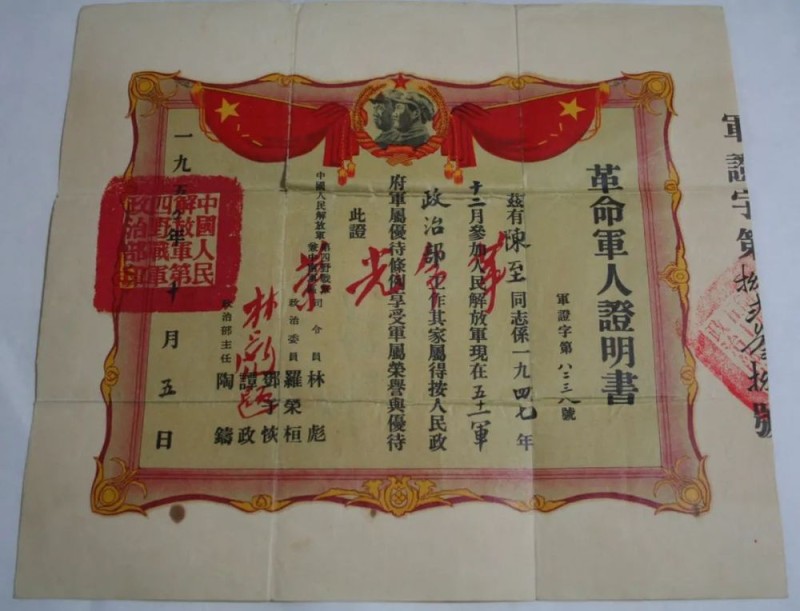 革命軍人證明書
軍證字第八三三八號
茲有陳至同志係一九四七年
十二月參加人民解放軍現在五十一軍
政治部工作其家屬得按人民政
府軍屬優待條例享受軍屬榮譽與優待
此證
中國人民解放軍第四野戰軍
司令員 林彪
政治委員 羅榮桓
鄧子恢
譚政
政治部主任 陶鑄
一九五〇年十月五日
中國人民
解放軍第
四野戰軍
政治部印
革命光榮
林彪題
軍證字第
號